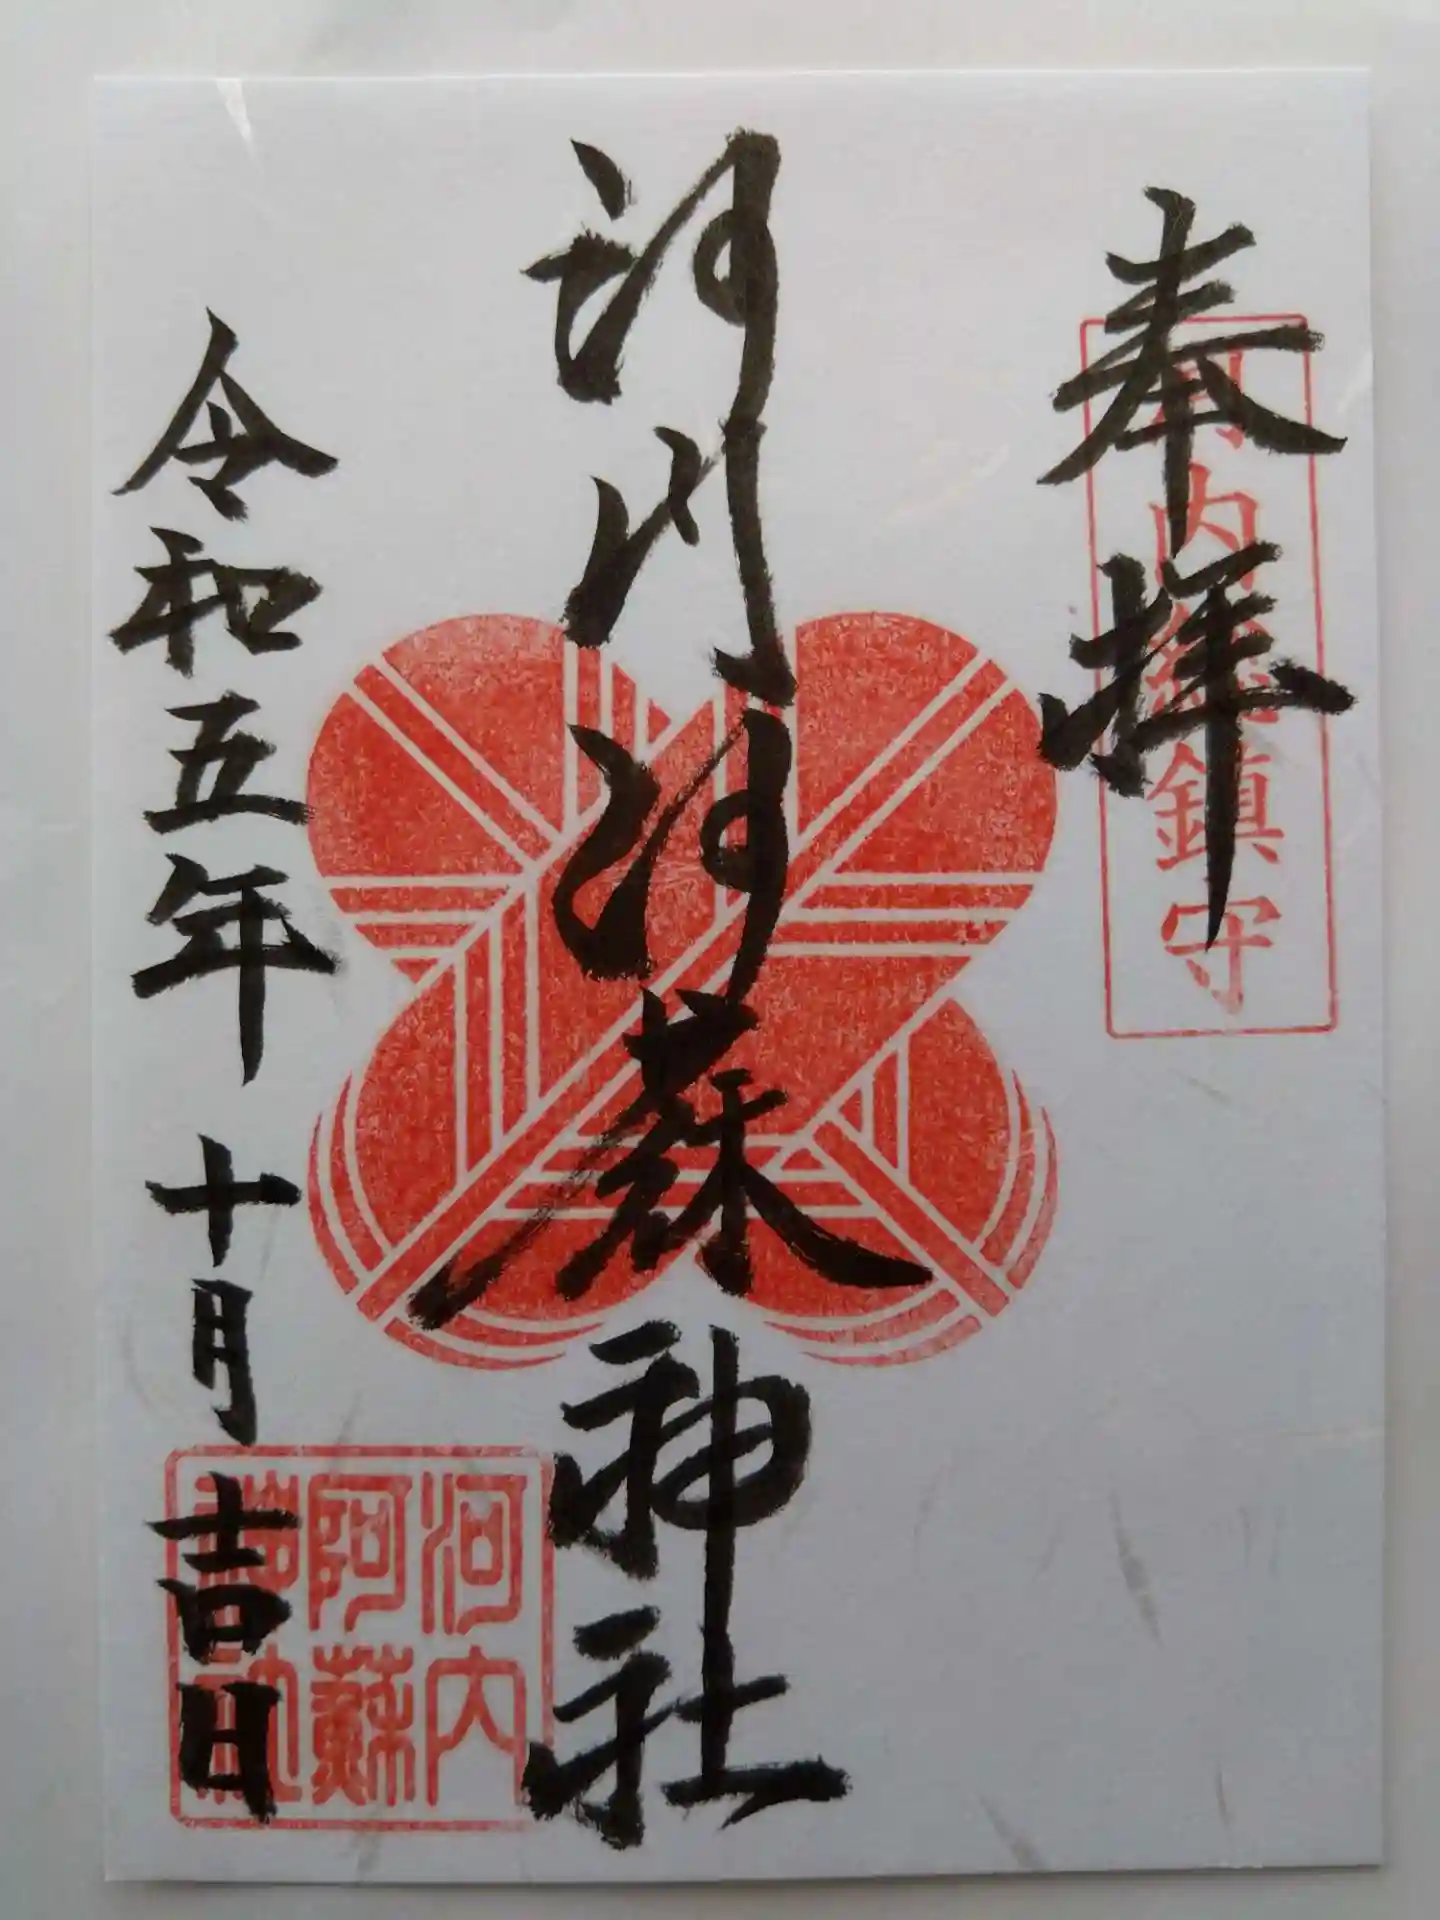 奉拝
河内総鎮守
河内阿蘇神社
令和五年十月吉日
河内
阿蘇
神社